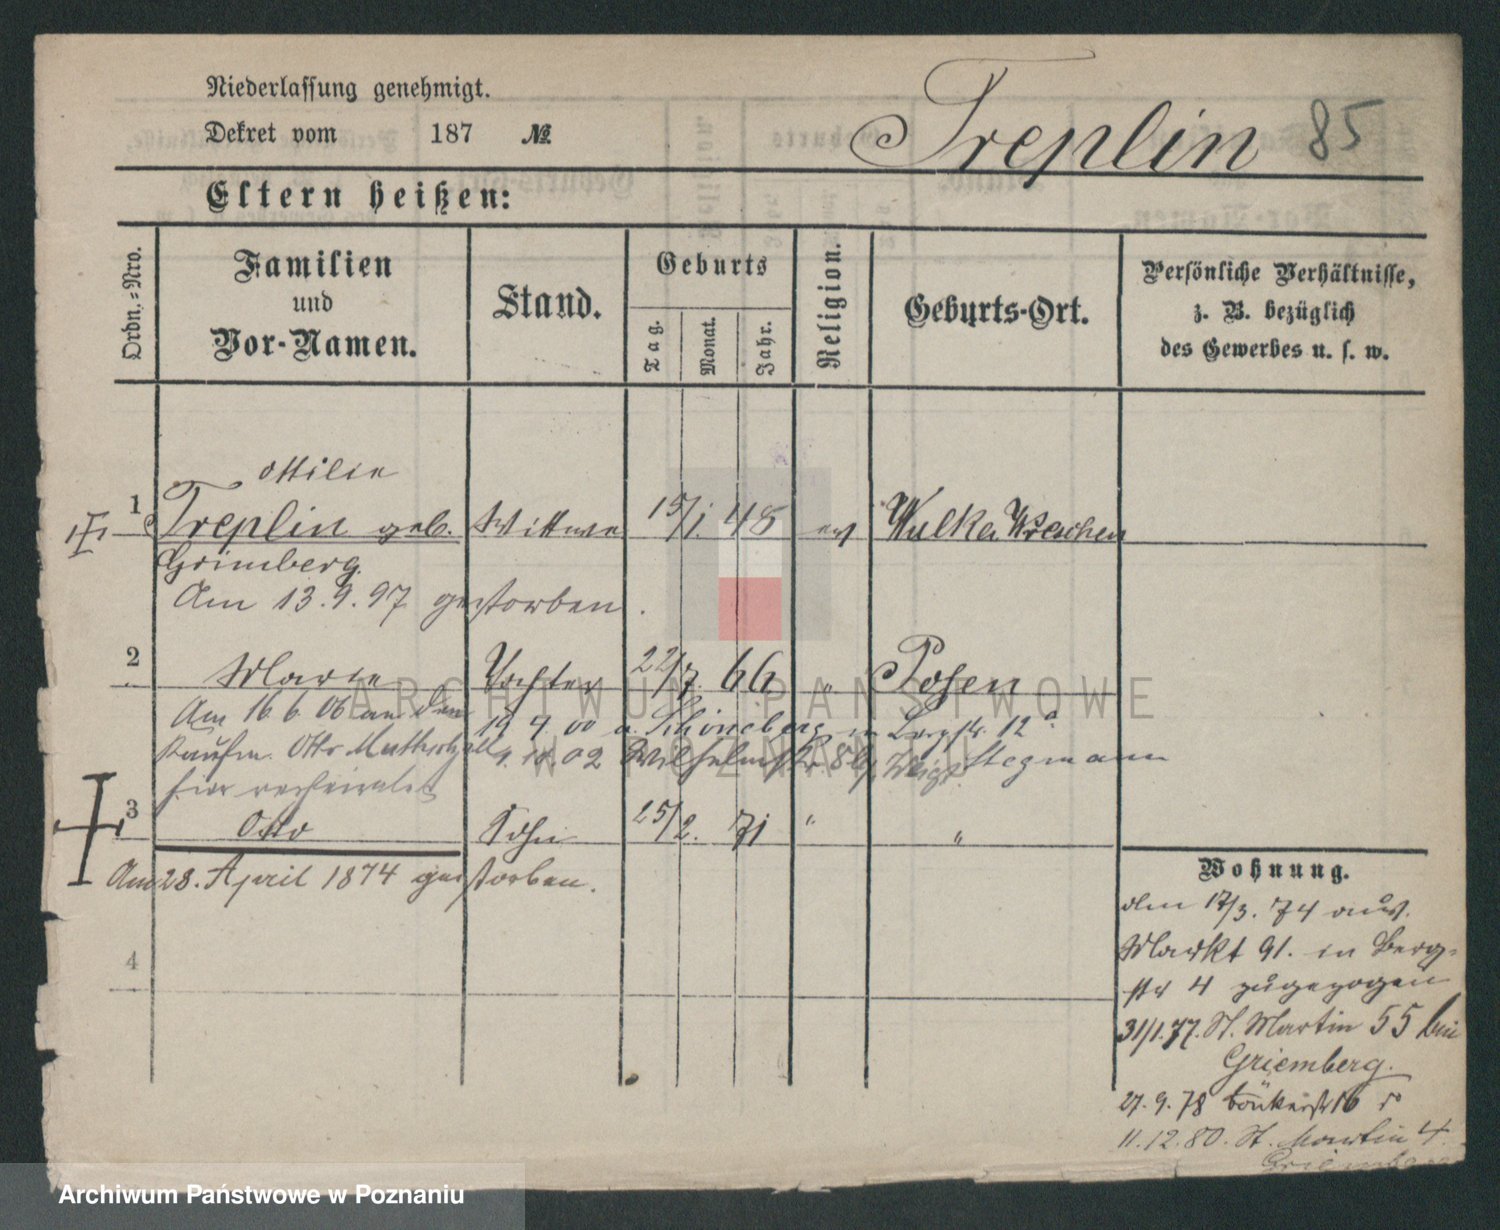 Niederlassung genehmigt.
Dekret vom 187 №
Treplin 85
Eltern heißen:
Ordn.-Nro.
Familien
und
Vor-Namen.
Stand.
Geburts
Tag.
Monat.
Jahr.
Religion.
Geburts-Ort.
Persönliche Verhältnisse,
z. B. bezüglich
des Gewerbes u. s. w.
Ottilie
1 Treplin geb. Wittwe 15/1. 48 ev Wulka Wreschen
Grimberg.
Am 13.9.97 gestorben.
2 Marie Tochter 22/7. 66 " Posen
Am 16 6 06 an den 19 9 00 n. Schöneberg in Bergstr. 12a
Kaufm. Otto 1.10.02 Wilhelmstr. Stegmann
hier verheiratet
3 Otto Sohn 25/2. 71 " "
Am 28. April 1874 gestorben.
4
Wohnung.
den 17/3. 74 aus.
Markt 91. in Berg-
str 4 zugezogen
31/1.77. St. Martin 55 bei
Griemberg.
27.9.78 16
11.12.80. St. Martin 4.
Griemberg
ARCHIWUM PAŃSTWOWE
W POZNANIU
Archiwum Państwowe w Poznaniu